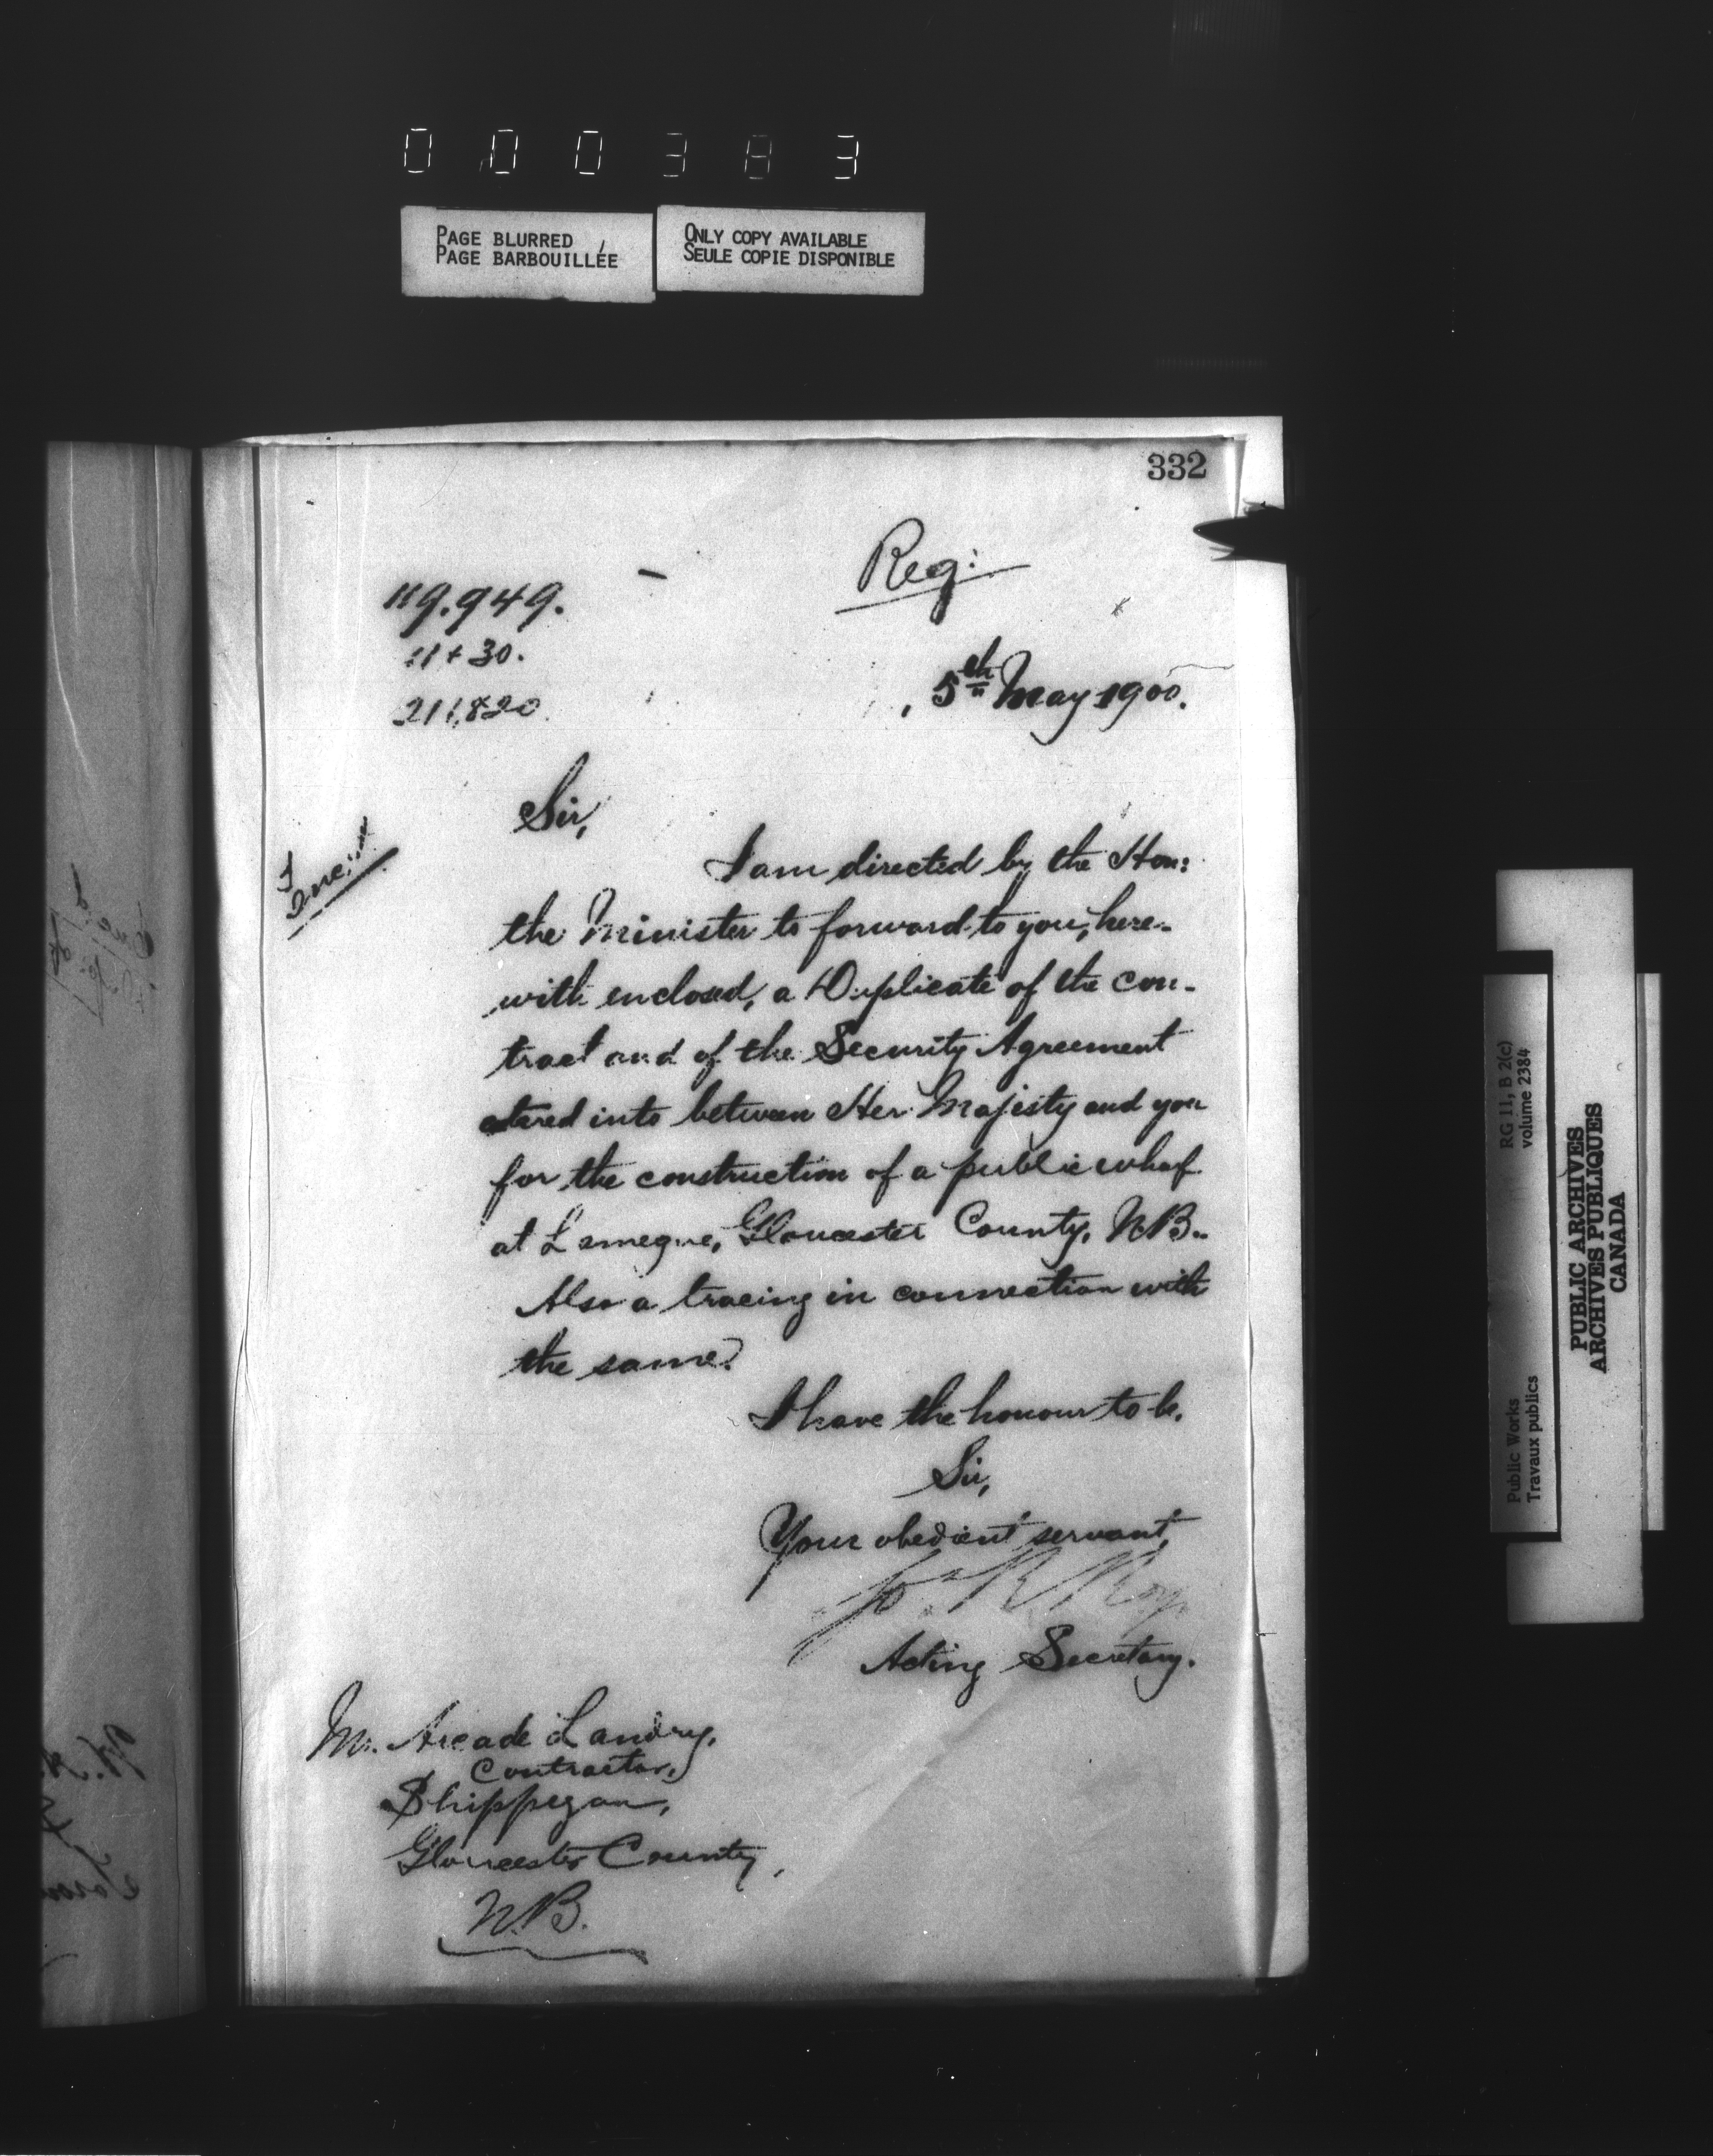 000383
PAGE BLURRED
PAGE BARBOUILLÉE
ONLY COPY AVAILABLE
SEULE COPIE DISPONIBLE
332
Reg:
9.949.
11+30.
211,820.
5th May 1900.
Sir,
I am directed by the Hon:
the Minister to forward to you, here-
with enclosed, a Duplicate of the con-
tract and of the Security Agreement
entered into between Her Majesty and you
for the construction of a public wharf
at Lameque, Gloucester County, N.B..
Also a tracing in connection with
the same.
I have the honour to be,
Sir,
Your obedient servant,
Jos R Roy
Acting Secretary.
Mr. Arcade Landry,
Contractor,
Shippegan,
Gloucester County,
N.B.
RG 11, B 2(c)
volume 2384
Public Works
Travaux publics
PUBLIC ARCHIVES
ARCHIVES PUBLIQUES
CANADA